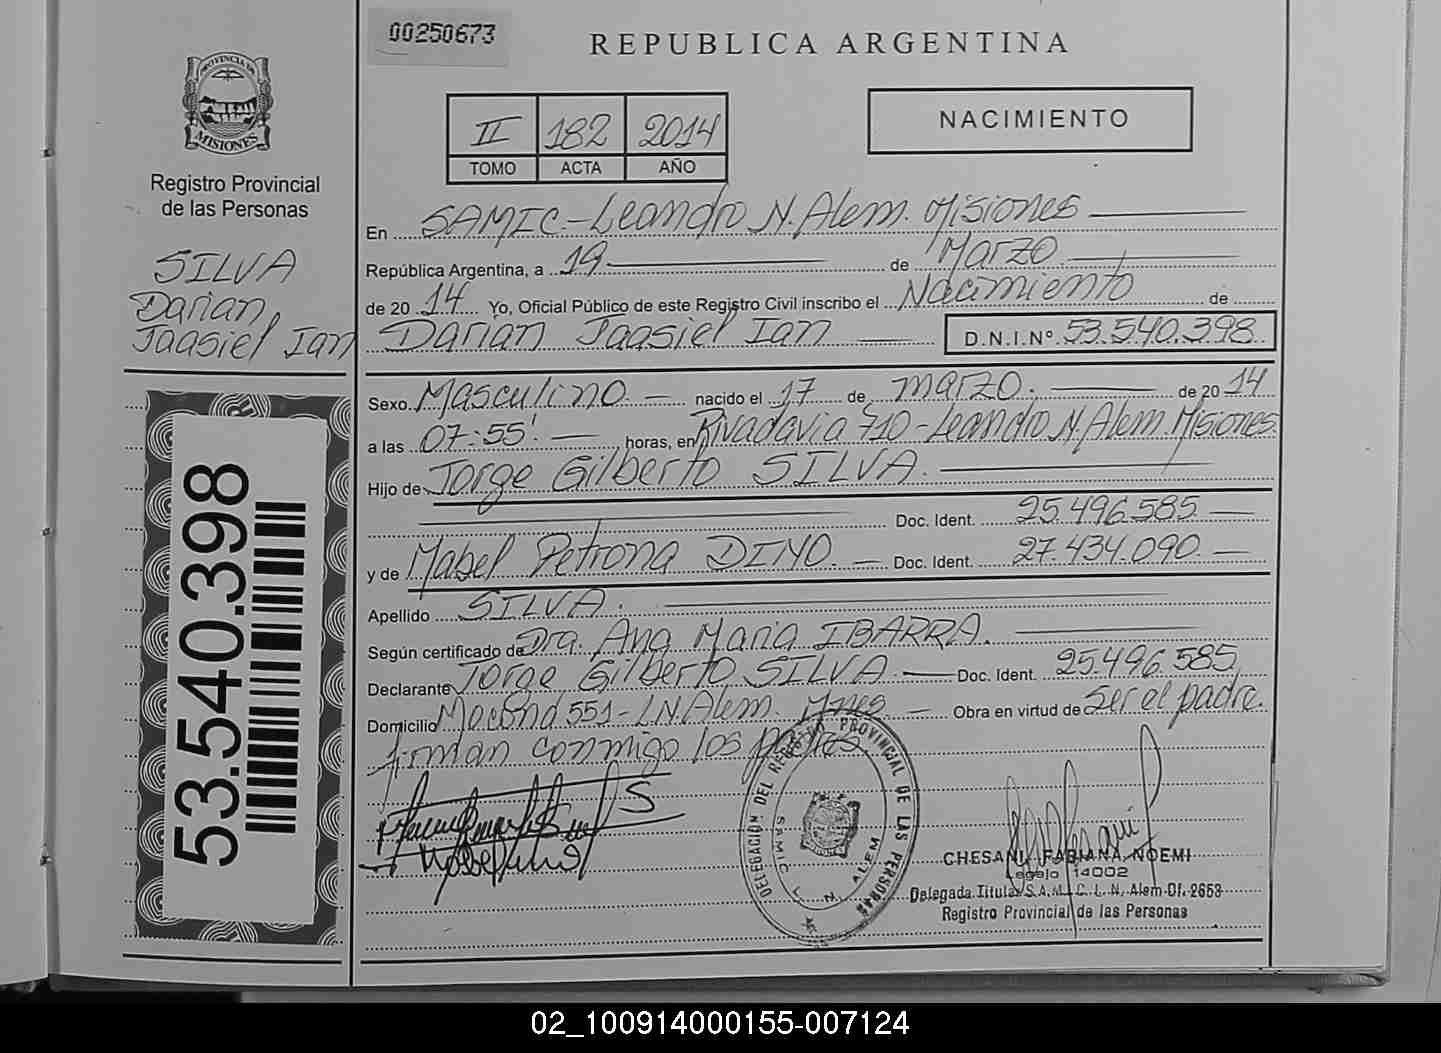 00250673
REPUBLICA ARGENTINA
PROVINCIA DE
MISIONES
Registro Provincial
de las Personas
II 182 2014
TOMO ACTA AÑO
NACIMIENTO
SILVA
Darian
Jaasiel Ian
53.540.398
En SAMIC-Leandro N. Alem. Misiones
República Argentina, a 19 de Marzo
de 2014 Yo, Oficial Público de este Registro Civil inscribo el Nacimiento de
Darian Jaasiel Ian D.N.I.Nº 53.540.398
Sexo Masculino nacido el 17 de marzo. de 2014
a las 07:55'. horas, en Rivadavia 710-Leandro N. Alem. Misiones
Hijo de Jorge Gilberto SILVA.
Doc. Ident. 25.496.585
y de Mabel Petrona DINO. Doc. Ident. 27.434.090
Apellido SILVA.
Según certificado de Dra. Ana Maria IBARRA.
Declarante Jorge Gilberto SILVA Doc. Ident. 25.496.585
Domicilio 551-L.N.Alem. Mnes Obra en virtud de ser el padre.
firman conmigo los padres.
DELEGACIÓN DEL REGISTRO PROVINCIAL DE LAS PERSONAS
SAMIC L. N. ALEM
CHESANI, FABIANA NOEMI
Legajo 14002
Delegada Titular S.A.M.I.C. L. N. Alem-Of. 2653
Registro Provincial de las Personas
02_100914000155-007124